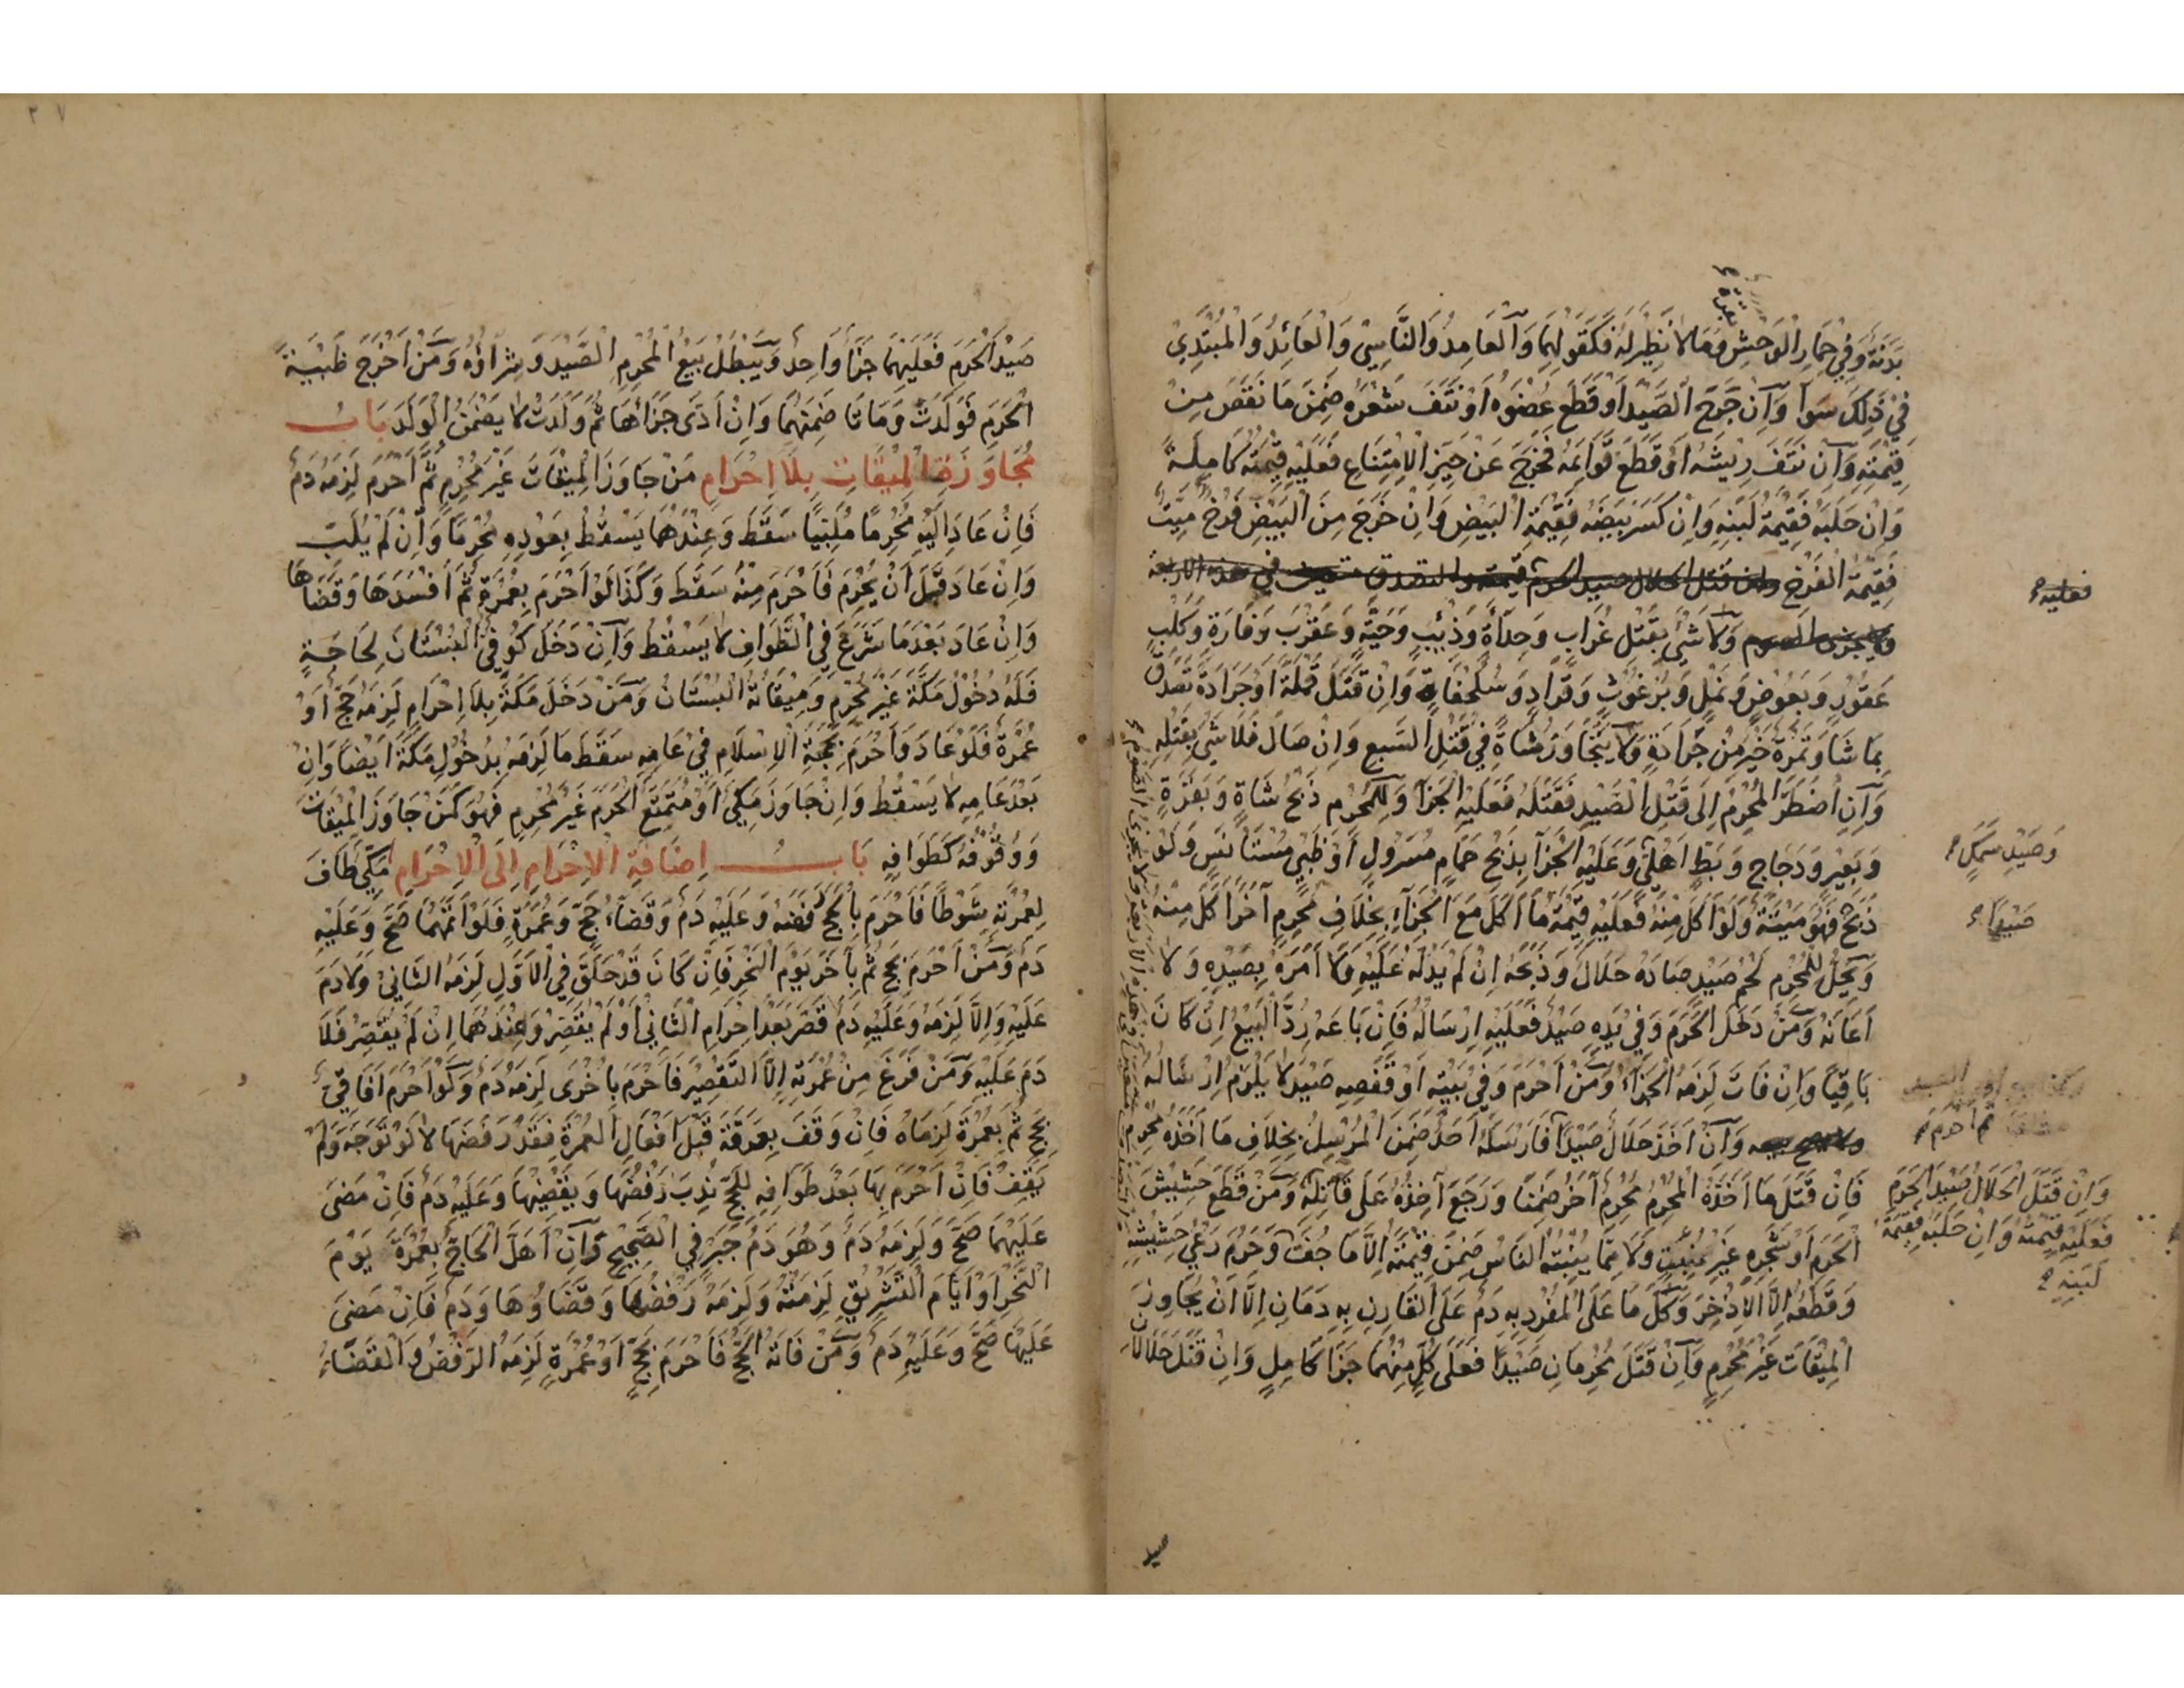 بَدَنَةٌ وَفِي حِمَارِ الْوَحْشِ بقرة وَمَا لَا نَظِيرَ لَهُ فَكَقَوْلِهِمَا وَالْعَامِدُ وَالنَّاسِي وَالْعَائِدُ وَالْمُبْتَدِيْ
فِي ذَلِكَ سَوَا وَاِنْ جَرَحَ الصَّيْدَ اَوْ قَطَعَ عُضْوَهُ اَوْ نَتَفَ شَعْرَهُ ضَمِنَ مَا نَقَصَ مِنْ
قِيْمَتِهِ وَاِنْ نَتَفَ رِيْشَهُ اَوْ قَطَعَ قَوَائِمَهُ فَخَرَجَ عَنْ حَيِّزِ الْاِمْتِنَاعِ فَعَلَيْهِ قِيْمَتُهُ كَامِلَةً
وَاِنْ حَلَبَهُ فَقِيْمَةُ لَبَنِهِ وَاِنْ كَسَرَ بَيْضَهُ فَقِيْمَةُ الْبَيْضِ وَاِنْ خَرَجَ مِنَ الْبَيْضِ فَرْخٌ مَيِّتٌ
فَقِيْمَةُ الْفَرْخِ وان قتل الحلال صيد الحرم قيمته والتصدق متعين في هذه الاربعة
فعليه
ولا يجزى الصوم وَلَا شَيْ بِقَتْلِ غُرَابٍ وَحِدَأَةٍ وَذِئْبٍ وَحَيَّةٍ وَعَقْرَبَ وَفَارَةٍ وَكَلْبٍ
عَقُوْرٍ وَبَعُوْضٍ وَنَمْلٍ وَبُرْغُوْثٍ وَقُرَادٍ وَسُلَحْفَاةٍ وَاِنْ قَتَلَ قَمْلَةً اَوْ جَرَادَةً تَصَدَّقَ
بِمَا شَا وَتَمْرَةٌ خَيْرٌ مِنْ جَرَادَةٍ وَلَا يَتَجَاوَزُ شَاةً فِي قَتْلِ السَّبُعِ وَاِنْ صَالَ فَلَا شَيْ بِقَتْلِهِ
وَاِنِ اضْطَرَّ الْمُحْرِمُ اِلَى قَتْلِ الصَّيْدِ فَقَتَلَهُ فَعَلَيْهِ الْجَزَآ وَلِلْمُحْرِمِ ذَبْحُ شَاةٍ وَبَقَرَةٍ
وَبَعِيْرٍ وَدَجَاجٍ وَبَطٍّ اَهْلِيٍّ وَعَلَيْهِ الْجَزَا بِذَبْحِ حَمَامٍ مُسَرْوَلٍ اَوْ ظَبْيٍ مُسْتَأْنَسٍ وَلَوْ
وَصَيْدِ سَمَكٍ
ذَبَحَ فَهُوَ مَيْتَةٌ وَلَوْ اَكَلَ مِنْهُ فَعَلَيْهِ قِيْمَةُ مَا اَكَلَ مَعَ الْجَزَآءِ بِخِلَافِ مُحْرِمٍ آخَرَ اَكَلَ مِنْهُ
صَيْدًا
وَيَحِلُّ لِلْمُحْرِمِ لَحْمُ صَيْدٍ صَادَهُ حَلَالٌ وَذَبَحَهُ اِنْ لَمْ يَدُلَّهُ عَلَيْهِ وَلَا اَمَرَهُ بِصَيْدِهِ وَلَا
اَعَانَهُ وَمَنْ دَخَلَ الْحَرَمَ وَفِيْ يَدِهِ صَيْدٌ فَعَلَيْهِ اِرْسَالُهُ فَاِنْ بَاعَهُ رُدَّ الْبَيْعُ اِنْ كَانَ
بَاقِيًا وَاِنْ فَاتَ لَزِمَهُ الْجَزَآءُ وَمَنْ اَحْرَمَ وَفِيْ بَيْتِهِ اَوْ قَفَصِهِ صَيْدٌ لَا يَلْزَمُ اِرْسَالُهُ
وَاِنْ اَخَذَ حَلَالٌ صَيْدًا فَاَرْسَلَهُ اَحَدٌ ضَمِنَ الْمُرْسِلُ بِخِلَافِ مَا اَخَذَهُ مُحْرِم
ثم احرم
فَاِنْ قَتَلَ مَا اَخَذَهُ الْمُحْرِمُ مُحْرِمٌ آخَرُ ضَمِنَا وَرَجَعَ آخِذُهُ عَلَى قَاتِلِهِ وَمَنْ قَطَعَ حَشِيْشَ
وَاِنْ قَتَلَ الْحَلَالُ صَيْدَ الْحَرَمِ
فَعَلَيْهِ قِيْمَتُهُ وَاِنْ حَلَبَهُ فَقِيْمَةُ
لَبَنِهِ
الْحَرَمِ اَوْ شَجَرَهُ غَيْرَ مُنْبَتٍ وَلَا مِمَّا يُنْبِتُهُ النَّاسُ ضَمِنَ قِيْمَتَهُ اِلَّا مَا جُفَّ وَحَرُمَ رَعْيُ حَشِيْشِهِ
وَقَطْعُهُ اِلَّا الْاِذْخِرَ وَكُلُّ مَا عَلَى الْمُفْرِدِ بِهِ دَمٌ عَلَى الْقَارِنِ بِهِ دَمَانِ اِلَّا اَنْ يُجَاوِزَ
الْمِيْقَاتَ غَيْرَ مُحْرِمٍ وَاِنْ قَتَلَ مُحْرِمَانِ صَيْدًا فَعَلَى كُلٍّ مِنْهُمَا جَزَا كَامِلٍ وَاِنْ قَتَلَ حَلَالَانِ
صيد
٢٧
صَيْدَ الْحَرَمِ فَعَلَيْهِمَا جَزَا وَاحِدٌ وَيَبْطُلُ بَيْعُ الْمُحْرِمِ الصَّيْدَ وَشِرَاؤُهُ وَمَنْ اَخْرَجَ ظَبْيَةَ
الْحَرَمِ فَوَلَدَتْ وَمَاتَا ضَمِنَهُمَا وَاِنْ اَدَّى جَزَاْءَهَا ثُمَّ وَلَدَتْ لَا يَضْمَنُ الْوَلَدَ بَابُ
مُجَاوَزَةِ الْمِيْقَاتِ بِلَا اِحْرَامٍ مَنْ جَاوَزَ الْمِيْقَاتَ غَيْرَ مُحْرِمٍ ثُمَّ اَحْرَمَ لَزِمَهُ دَمٌ
فَاِنْ عَادَ اِلَيْهِ مُحْرِمًا مُلَبِّيًا سَقَطَ وَعِنْدَهُمَا يَسْقُطُ بِعَوْدِهِ مُحْرِمًا وَاِنْ لَمْ يُلَبِّ
وَاِنْ عَادَ قَبْلَ اَنْ يُحْرِمَ فَاَحْرَمَ مِنْهُ سَقَطَ وَكَذَا لَوْ اَحْرَمَ بِعُمْرَةٍ ثُمَّ اَفْسَدَهَا وَقَضَاهَا
وَاِنْ عَادَ بَعْدَمَا شَرَعَ فِي الطَّوَافِ لَا يَسْقُطُ وَاِنْ دَخَلَ كُوْفِيٌّ الْبُسْتَانَ لِحَاجَةٍ
فَلَهُ دُخُوْلُ مَكَّةَ غَيْرَ مُحْرِمٍ وَمِيْقَاتُهُ الْبُسْتَانُ وَمَنْ دَخَلَ مَكَّةَ بِلَا اِحْرَامٍ لَزِمَهُ حَجٌّ اَوْ
عُمْرَةٌ فَلَوْ عَادَ وَاَحْرَمَ بِحَجَّةِ الْاِسْلَامِ فِيْ عَامِهِ سَقَطَ مَا لَزِمَهُ بِدُخُوْلِ مَكَّةَ اَيْضًا وَاِنْ
بَعْدَ عَامِهِ لَا يَسْقُطُ وَاِنْ جَاوَزَ مَكِّيٌّ اَوْ مُتَمَتِّعٌ الْحَرَمَ غَيْرَ مُحْرِمٍ فَهُوَ كَمَنْ جَاوَزَ الْمِيْقَاتَ
وَوُقُوْفُهُ كَطَوَافِهِ بَابُ اِضَافَةِ الْاِحْرَامِ اِلَى الْاِحْرَامِ مَكِّيٌّ طَافَ
لِعُمْرَتِهِ شَوْطًا فَاَحْرَمَ بِالْحَجِّ رَفَضَهُ وَعَلَيْهِ دَمٌ وَقَضَآءُ حَجٍّ وَعُمْرَةٍ فَلَوْ اَتَمَّهُمَا صَحَّ وَعَلَيْهِ
دَمٌ وَمَنْ اَحْرَمَ بِحَجٍّ ثُمَّ بِآخَرَ يَوْمَ النَّحْرِ فَاِنْ كَانَ قَدْ حَلَقَ فِي الْاَوَّلِ لَزِمَهُ الثَّانِيْ وَلَا دَمَ
عَلَيْهِ وَاِلَّا لَزِمَهُ وَعَلَيْهِ دَمٌ قَصَّرَ بَعْدَ اِحْرَامِ الثَّانِيْ اَوْ لَمْ يُقَصِّرْ وَعِنْدَهُمَا اِنْ لَمْ يُقَصِّرْ فَلَا
دَمَ عَلَيْهِ وَمَنْ فَرَغَ مِنْ عُمْرَتِهِ اِلَّا التَّقْصِيْرَ فَاَحْرَمَ بِاُخْرَى لَزِمَهُ دَمٌ وَلَوْ اَحْرَمَ آفَاقِيٌّ
بِحَجٍّ ثُمَّ بِعُمْرَةٍ لَزِمَاهُ فَاِنْ وَقَفَ بِعَرَفَةَ قَبْلَ اَفْعَالِ الْعُمْرَةِ فَقَدْ رَفَضَهَا لَا لَوْ تَوَجَّهَ وَلَمْ
يَقِفْ فَاِنْ اَحْرَمَ بِهَا بَعْدَ طَوَافِهِ لِلْحَجِّ نُدِبَ رَفْضُهَا وَيَقْضِيْهَا وَعَلَيْهِ دَمٌ فَاِنْ مَضَى
عَلَيْهِمَا صَحَّ وَلَزِمَهُ دَمٌ وَهُوَ دَمُ جَبْرٍ فِي الصَّحِيْحِ وَاِنْ اَهَلَّ الْحَاجُّ بِعُمْرَةٍ يَوْمَ
النَّحْرِ اَوْ اَيَّامَ التَّشْرِيْقِ لَزِمَتْهُ وَلَزِمَهُ رَفْضُهَا وَقَضَاوُهَا وَدَمٌ فَاِنْ مَضَى
عَلَيْهَا صَحَّ وَعَلَيْهِ دَمٌ وَمَنْ فَاتَهُ الْحَجُّ فَاَحْرَمَ بِحَجٍّ اَوْ عُمْرَةٍ لَزِمَهُ الرَّفْضُ وَالْقَضَاءُ